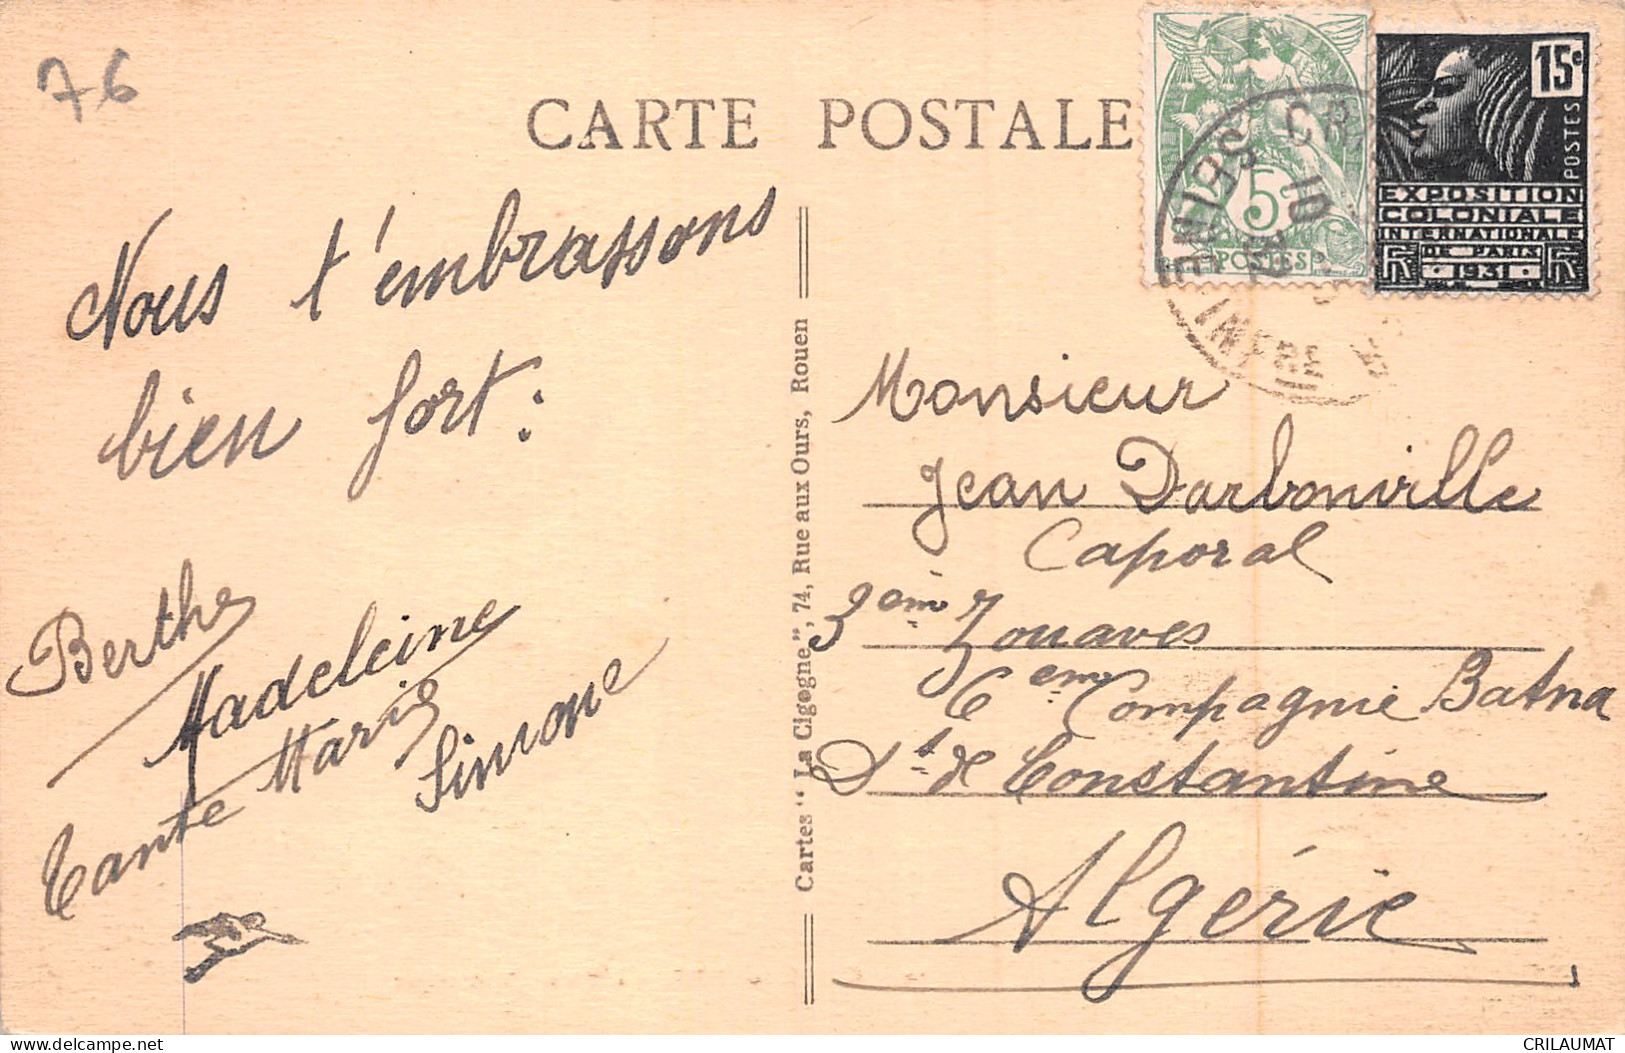 76
CARTE POSTALE
Nous t'embrassons
bien fort :
Berthe
Madeleine
Tante Marie
Simone
Cartes "La Cigogne", 74, Rue aux Ours, Rouen
5
POSTES
15c
POSTES
EXPOSITION
COLONIALE
INTERNATIONALE
DE PARIS
1931
SEINE INFRE
Monsieur
Jean Darbonville
Caporal
3ème Zouaves
6ème Compagnie Batna
Dt de Constantine
Algérie
delcampe.net
CRILAUMAT